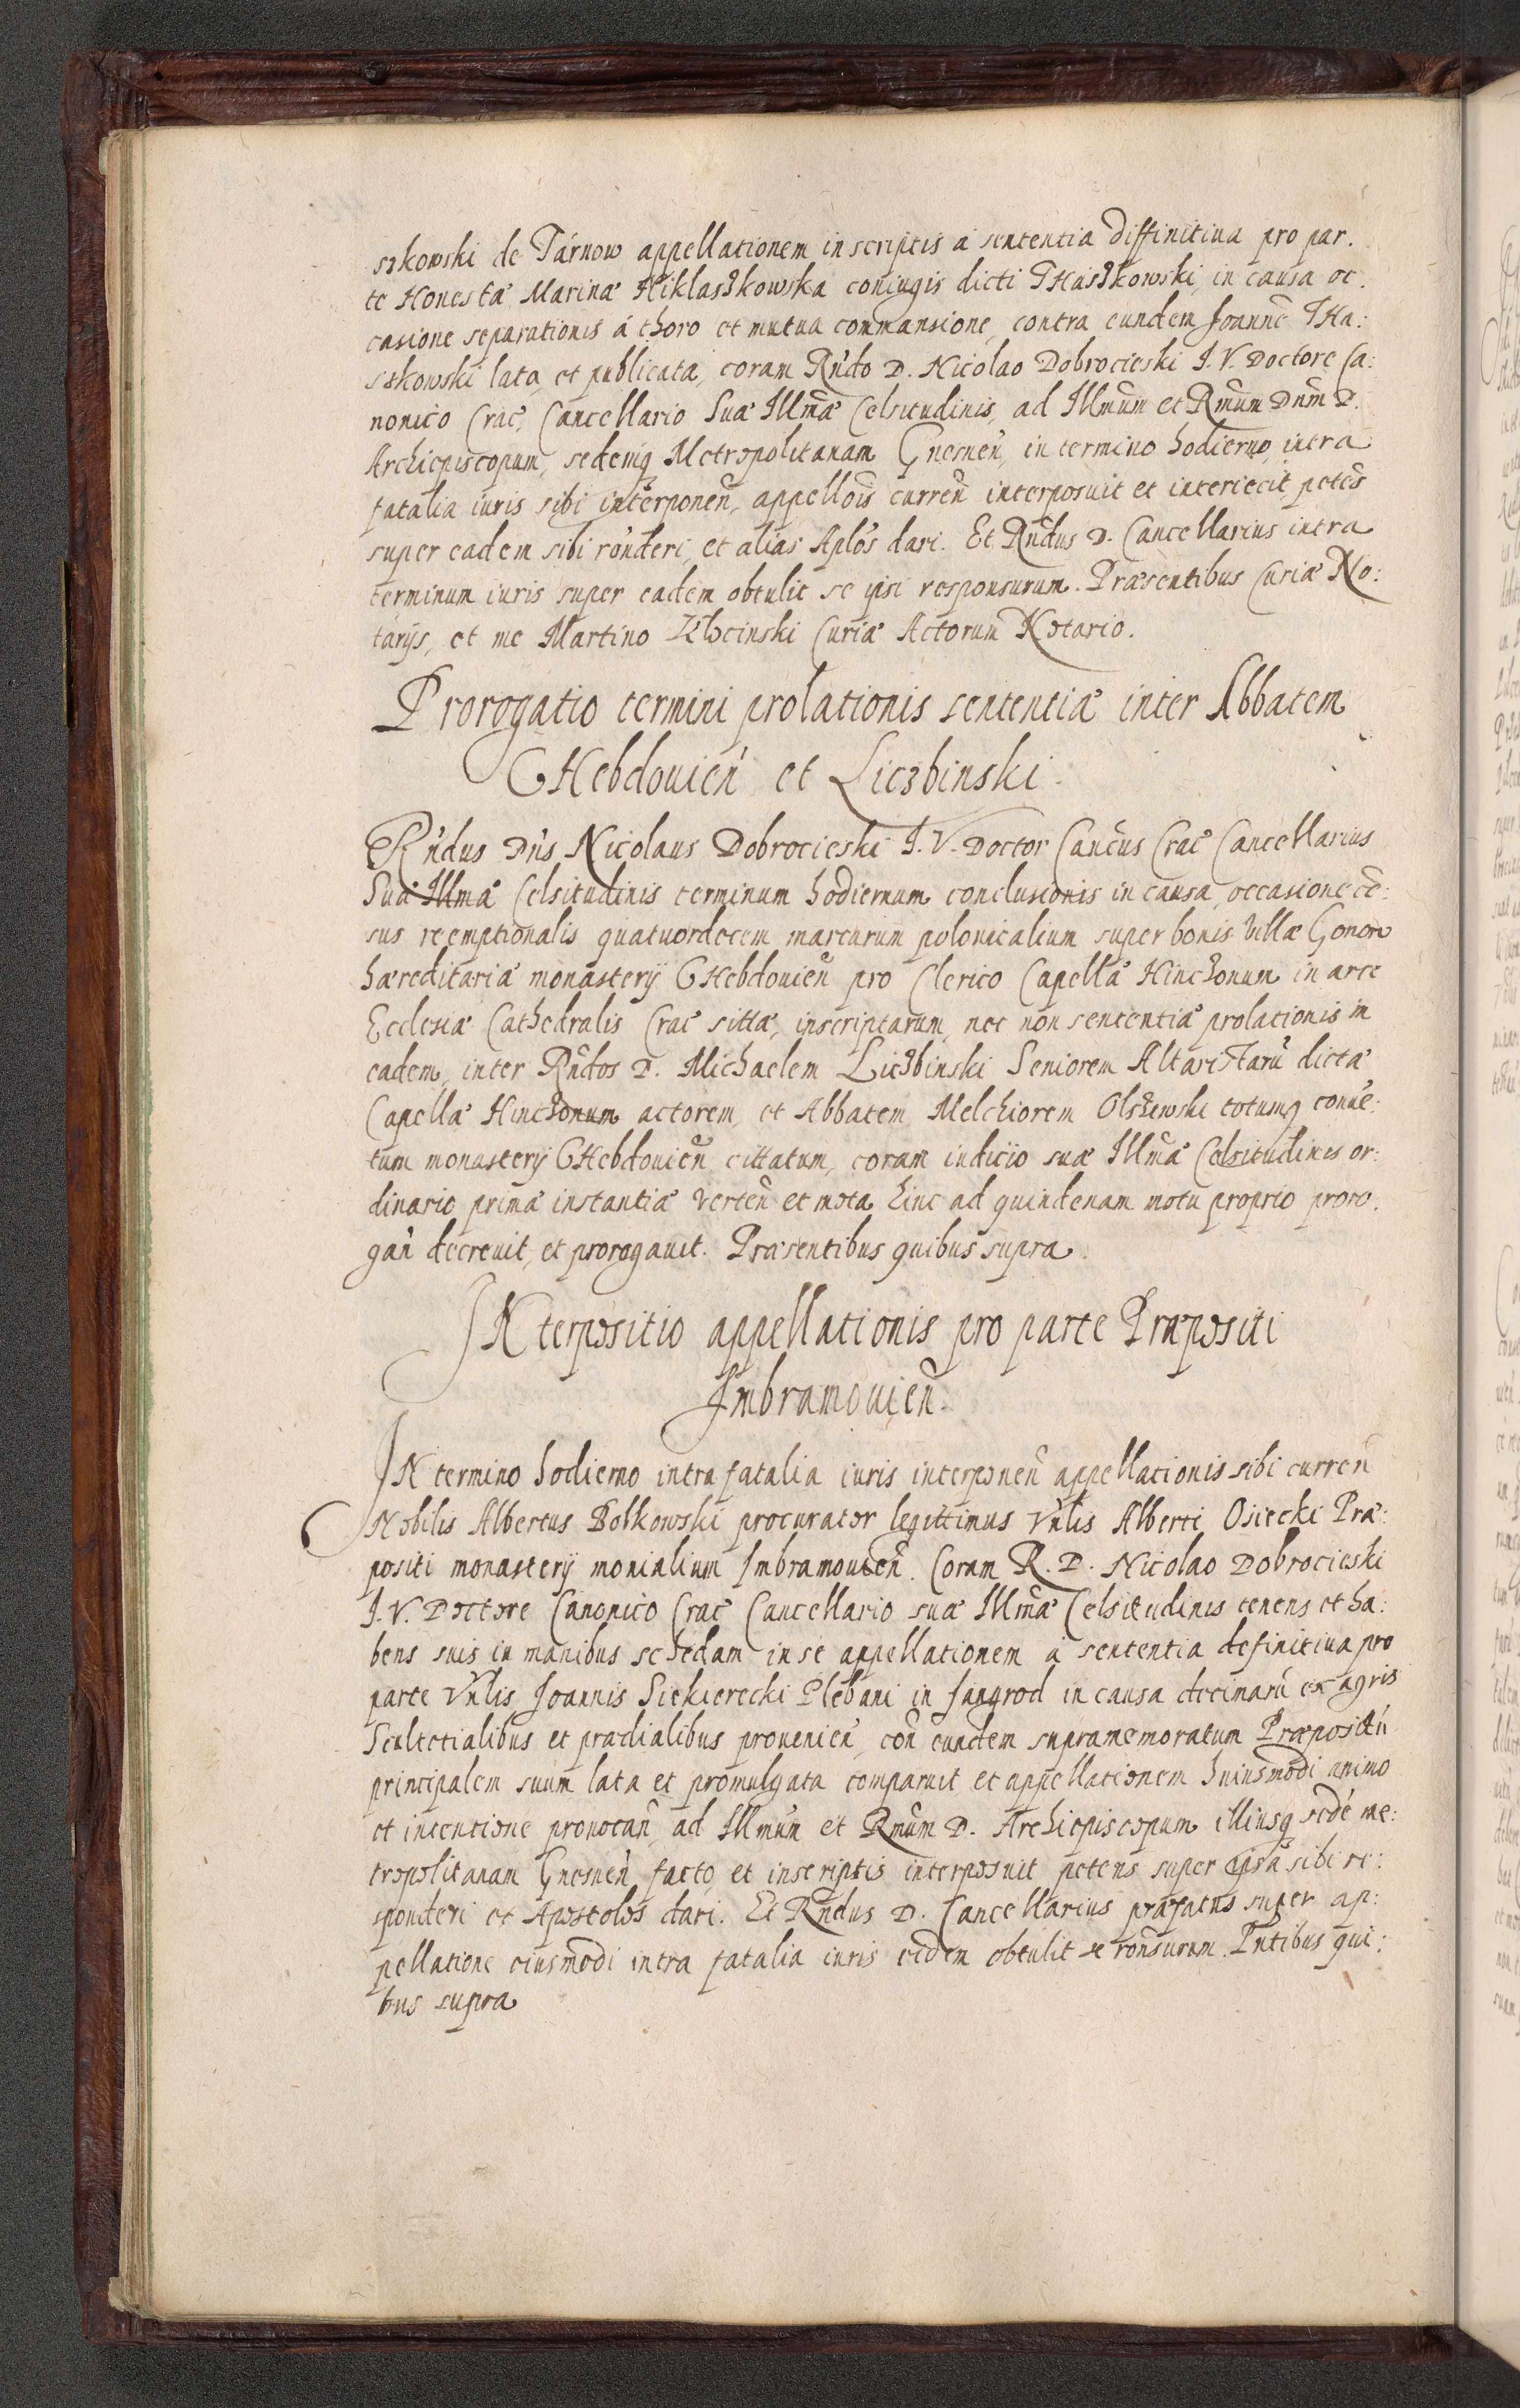 szkowski de Tárnow appellationem in scriptis a sententia diffinitiua pro par.
te Honestæ Marinæ Miklaszkowska coniugis dicti THaszkowski, in causa oc.
casione separationis á thoro et mutua commansione, contra eundem Joannē THa:
szkowski lata, et publicata, coram Rńdo D. Nicolao Dobrocieski J. V. Doctore Ca:
nonico Crac̄, Cancellario Suæ Illm̄æ Celsitudinis, ad Illm̄um et Rm̄um Dn̄m D.
Archiepiscopum, sedemq̨ Metropolitanam Gnesnen̄, in termino hodierno, intra
fatalia iuris sibi interponen̄, appellōis curren̄ interposuit et interiecit petēs
super eadem sibi rōnderi, et alias Aplōs dari. Et Rn̄dus D. Cancellarius intra
terminum iuris super eadem obtulit se ipsi responsurum. Præsentibus Curiæ No:
tarijs, et me Martino Klocinski Curiæ Actorum Notario.
Prorogatio termini prolationis sententiæ inter Abbatem
GHebdouien̄ et Liczbinski.
Rńdus Dńs Nicolaus Dobrocieski J. V. Doctor Canc̄us Crac̄ Cancellarius
Suæ Illmæ Celsitudinis terminum hodiernum conclusionis in causa, occasione cē:
sus reemptionalis quatuordecem marcarum polonicalium super bonis villæ Gonow
hæreditariæ monasterij GHebdouien̄ pro Clerico Capellæ Hinczonum in arce
Ecclesiæ Cathedralis Crac̄ sittæ, inscriptarum, nec non sententiæ prolationis in
eadem, inter Rn̄dos D. Michaelem Liczbinski Seniorem Altaristarū dictæ
Capellæ Hinczonum actorem, et Abbatem Melchiorem Olszewski totumq̨ conuē:
tum monasterij GHebdouien̄ cittatum, coram iudicio suæ Illm̄æ Celsitudinis or:
dinario primæ instantiæ verten̄ et mota hinc ad quindenam motu proprio proro.
gan̄ decreuit, et prorogauit. Præsentibus quibus supra.
INterpositio appellationis pro parte Præpositi
Imbramouien̄.
IN termino hodierno intra fatalia iuris interponen̄ appellationis sibi curren̄
Nobilis Albertus Bolkowski procurator legittimus Vn̄lis Alberti Osiecki Præ:
positi monasterij monialium Imbramouien̄. Coram R. D. Nicolao Dobrocieski
J. V. Doctore Canonico Crac̄ Cancellario suæ Illm̄æ Celsitudinis tenens et ha:
bens suis in manibus schedam in se appellationem a sententia definitiua pro
parte Vn̄lis Joannis Siekierecki Plebani in Jangrod in causa decimarū ex agris
Scultetialibus et prædialibus prouenien̄, con̄ eundem supramemoratum Præpositū
principalem suum lata et promulgata comparuit et appellationem huiusmodi animo
et intentione prouocan̄ ad Illm̄um et Rm̄um D. Archiepiscopum illiusq̨ sedē me:
tropolitanam Gnesnen̄ facto, et inscriptis interposuit petens super ipsā sibi re:
sponderi et Apostolos dari. Et Rn̄dus D. Cancellarius præfatus super ap:
pellatione eiusmodi intra fatalia iuris eidem obtulit se rōnsurum. Pn̄tibus qui:
bus supra